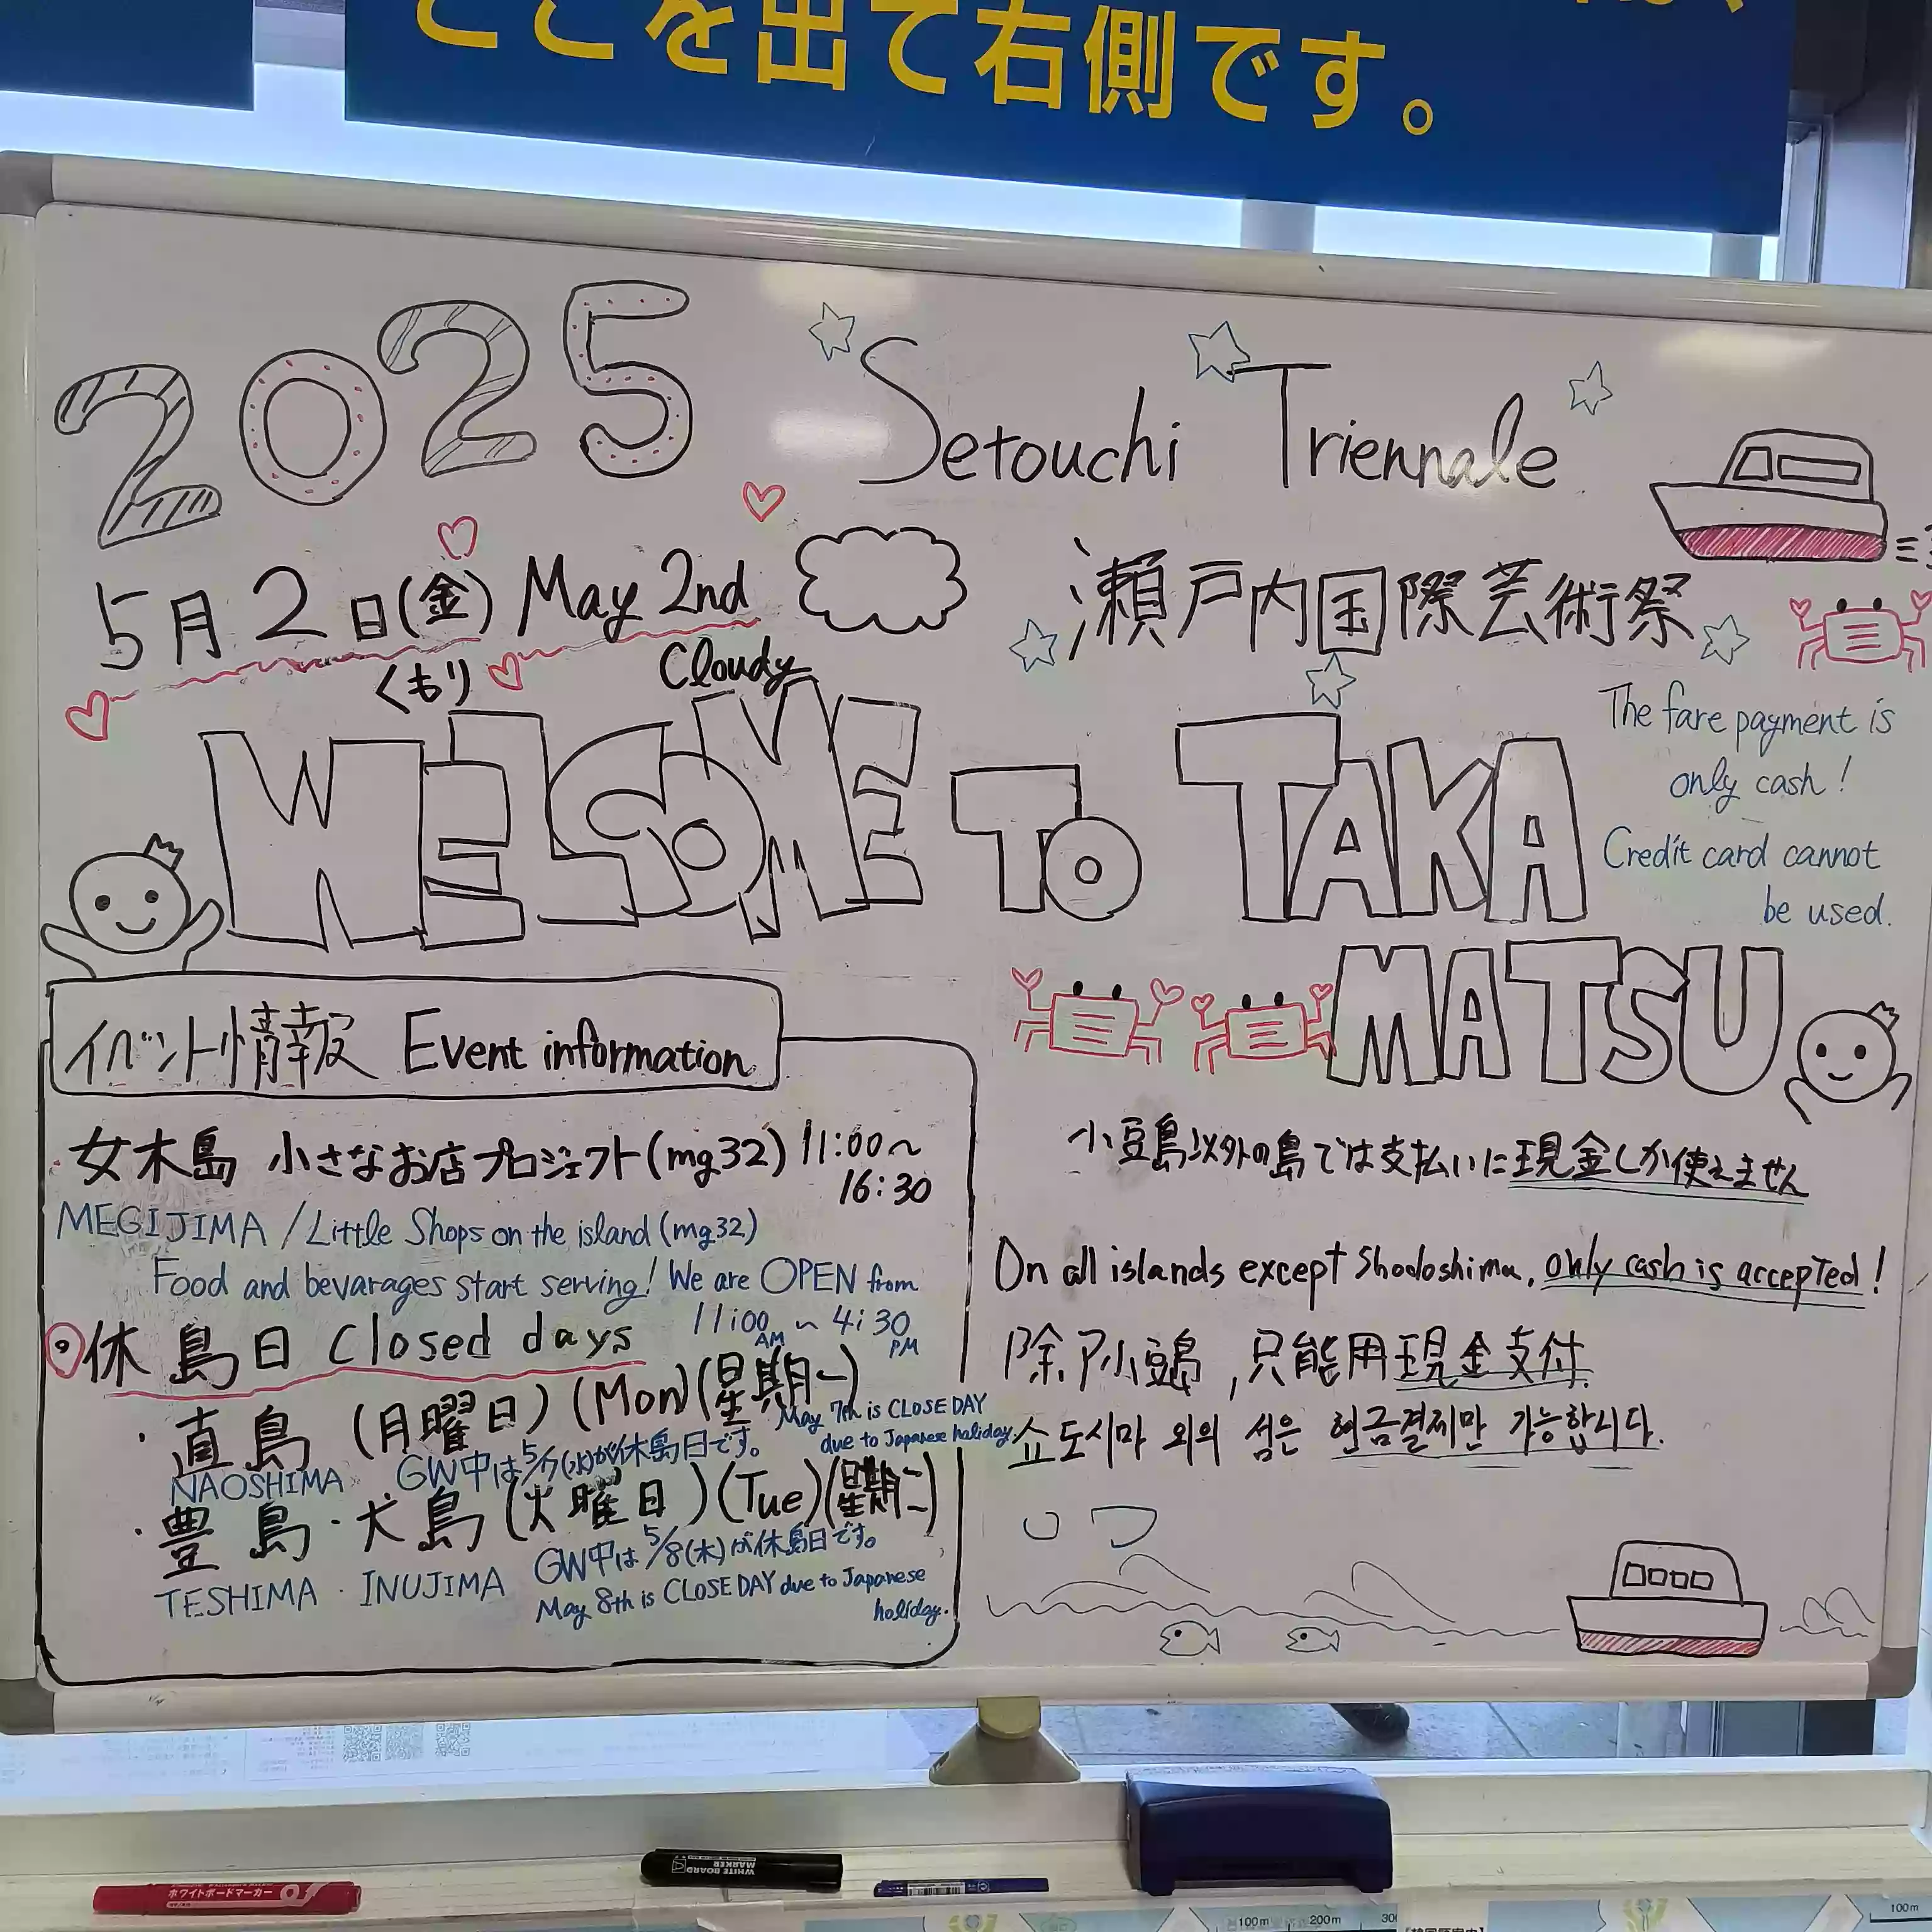 ここを出て右側です。
2025 Setouchi Triennale
5月2日(金) May 2nd
くもり Cloudy
瀬戸内国際芸術祭
WELCOME TO TAKA
MATSU
The fare payment is
only cash!
Credit card cannot
be used.
イベント情報 Event information
女木島 小さなお店プロジェクト(mg32) 11:00〜
16:30
MEGIJIMA / Little Shops on the island (mg32)
Food and bevarages start serving! We are OPEN from
11:00 AM 〜 4:30 PM
休島日 Closed days
・直島 (月曜日) (Mon) (星期一)
NAOSHIMA GW中は5/7(水)が休島日です。
May 7th is CLOSE DAY
due to Japanese holiday.
・豊島・犬島 (火曜日) (Tue) (星期二)
TESHIMA・INUJIMA GW中は5/8(木)が休島日です。
May 8th is CLOSE DAY due to Japanese
holiday.
小豆島以外の島では支払いに現金しか使えません
On all islands except Shodoshima, only cash is accepted!
除了小豆島,只能用現金支付.
쇼도시마 외의 섬은 현금결제만 가능합니다.
WHITE BOARD
MARKER
ホワイトボードマーカー
100m 200m
100m